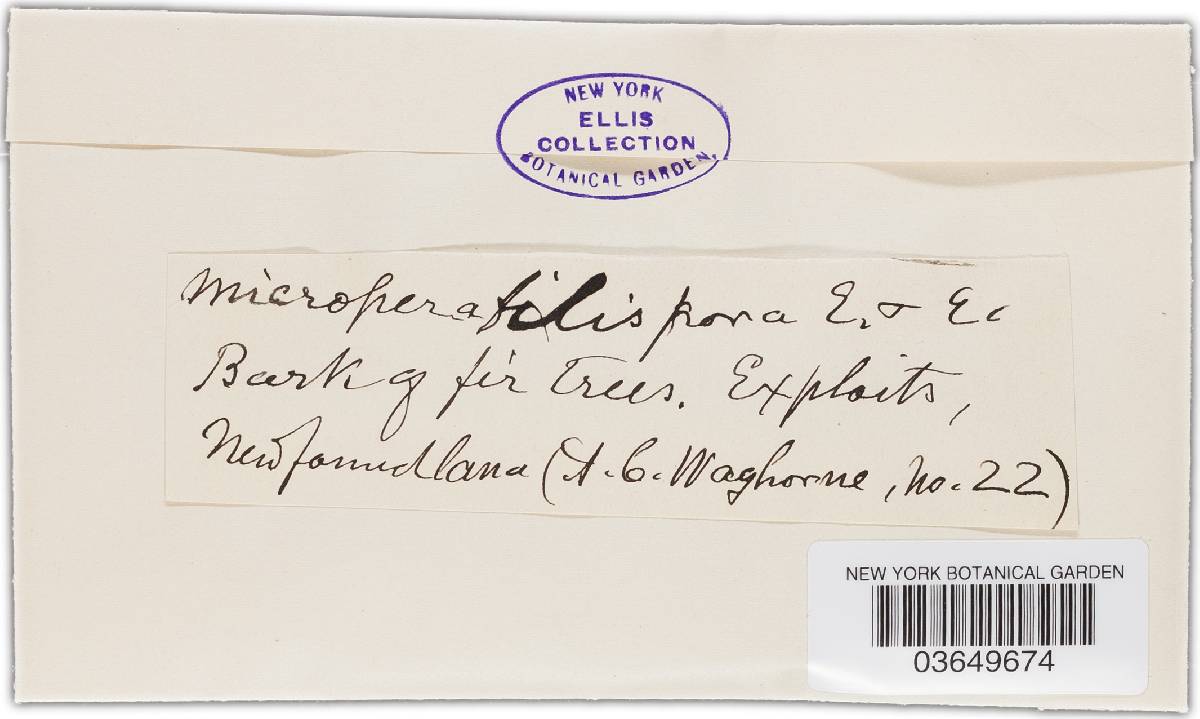 NEW YORK
ELLIS
COLLECTION
BOTANICAL GARDEN.
Microperafilispora E. & E.
Bark of fir trees. Exploits,
Newfoundland (A. C. Waghorne, No. 22)
NEW YORK BOTANICAL GARDEN
03649674